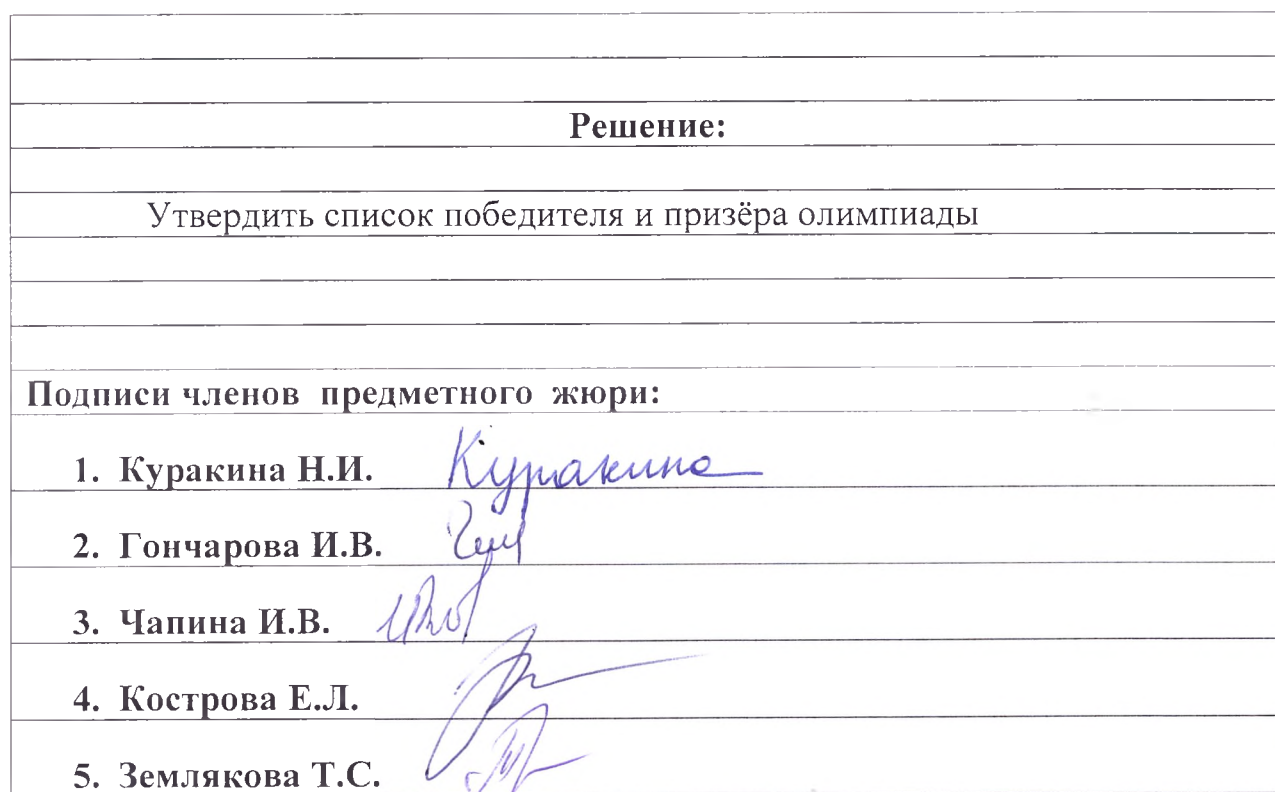 Решение:
Утвердить список победителя и призёра олимпиады
Подписи членов предметного жюри:
1. Куракина Н.И. Куракина
2. Гончарова И.В.
3. Чапина И.В.
4. Кострова Е.Л.
5. Землякова Т.С.